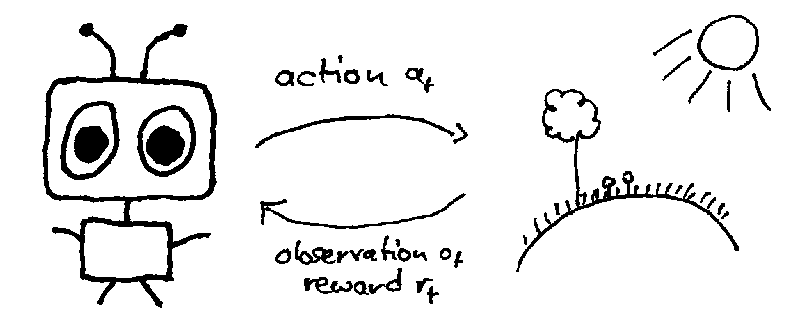 action aₜ
observation oₜ
reward rₜ